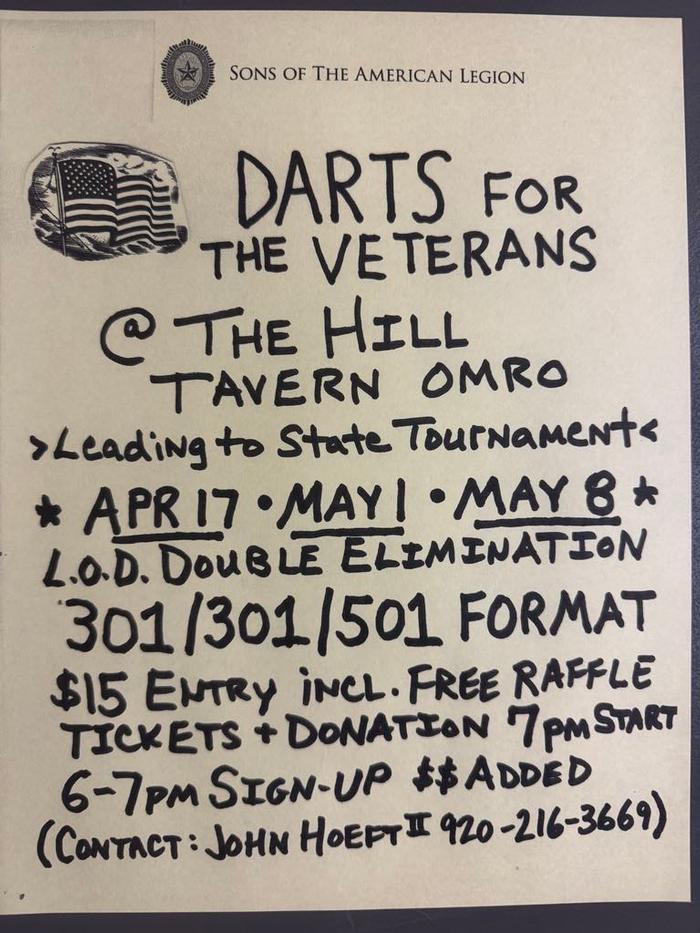 SONS OF THE AMERICAN LEGION
DARTS FOR
THE VETERANS
@ THE HILL
TAVERN OMRO
>Leading to State Tournament<
* APR 17 • MAY 1 • MAY 8 *
L.O.D. DOUBLE ELIMINATION
301/301/501 FORMAT
$15 ENTRY incl. FREE RAFFLE
TICKETS + DONATION 7pm START
6-7pm SIGN-UP $$ ADDED
(CONTACT: JOHN HOEFT II 920-216-3669)